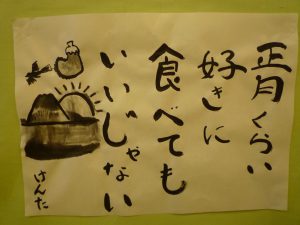 正月くらい
好きに
食べても
いいじゃない
けんた